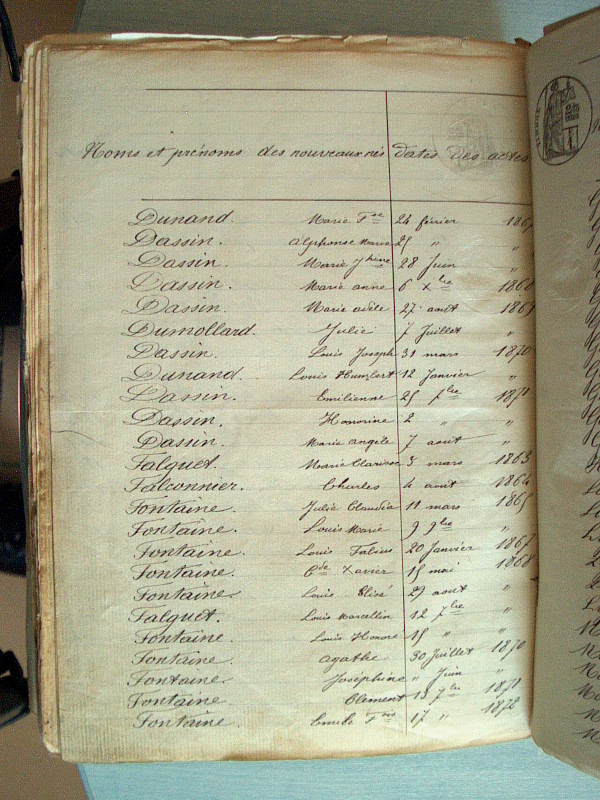 Noms et prénoms des nouveaux nés dates des actes
Dunand. Marie Fse 24 février 1867
Dassin. Alphonse Marie 25 " "
Dassin. Marie Jhine 28 Juin "
Dassin. Marie anne 6 Xbre 1868
Dassin. Marie adèle 27 août 1869
Dumollard. Julie 7 Juillet "
Dassin. Louis Joseph 31 mars 1870
Dunand. Louis Humbert 12 Janvier "
Dassin. Emilienne 25 7bre 1871
Dassin. Honorine 2 " "
Dassin. Marie angèle 7 août "
Falquet. Marie Clarisse 3 mars 1863
Falconnier. Charles 4 août 1864
Fontaine. Julie Claudia 11 mars 1865
Fontaine. Louis Marie 9 9bre "
Fontaine. Louis Fabius 20 Janvier 1867
Fontaine. Cde Xavier 15 mai 1868
Fontaine. Louis Elisa 29 août "
Falquet. Louis Marcellin 12 7bre "
Fontaine. Louis Honoré 15 " "
Fontaine. agathe 30 Juillet 1870
Fontaine. Joséphine " Juin "
Fontaine. Clément 13 7bre 1871
Fontaine. Emile Fois 17 " 1872